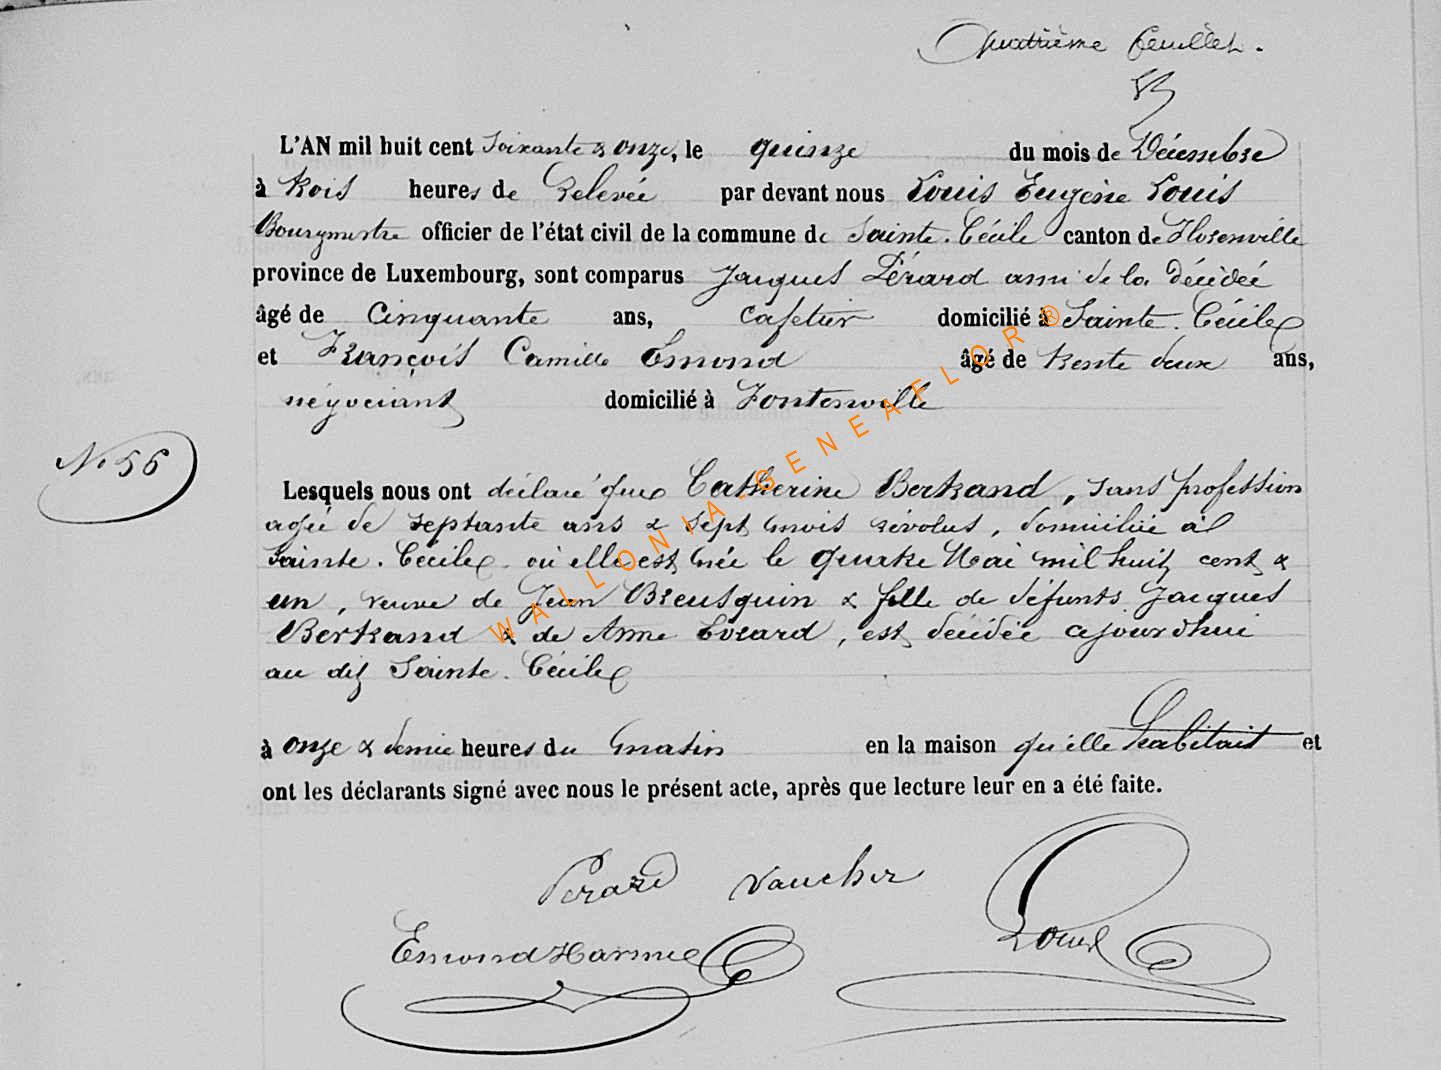 Quatrième feuillet.
L'AN mil huit cent soixante & onze, le quinze du mois de Décembre
à trois heures de relevée par devant nous Louis Eugène Louis
Bourgmestre officier de l'état civil de la commune de Sainte-Cécile canton de Florenville
province de Luxembourg, sont comparus Jacques Pérard ami de la décédée
âgé de cinquante ans, cafetier domicilié à Sainte-Cécile
et François Camille Emond âgé de trente deux ans,
négociant domicilié à Fontenoille
N° 56
Lesquels nous ont déclaré que Catherine Bertrand, sans profession
agée de septante ans & sept mois révolus, domiciliée à
Sainte-Cécile où elle est née le quatre Mai mil huit cent &
un, veuve de Jean Breusquin & fille de défunts Jacques
Bertrand & de Anne Evrard, est décédée ajourdhui
au dit Sainte-Cécile
à onze & demie heures du matin en la maison qu'elle habitait et
ont les déclarants signé avec nous le présent acte, après que lecture leur en a été faite.
Perard Vaucher
Emond Harmel Louis
WALLONIA-GENEAFLOR®